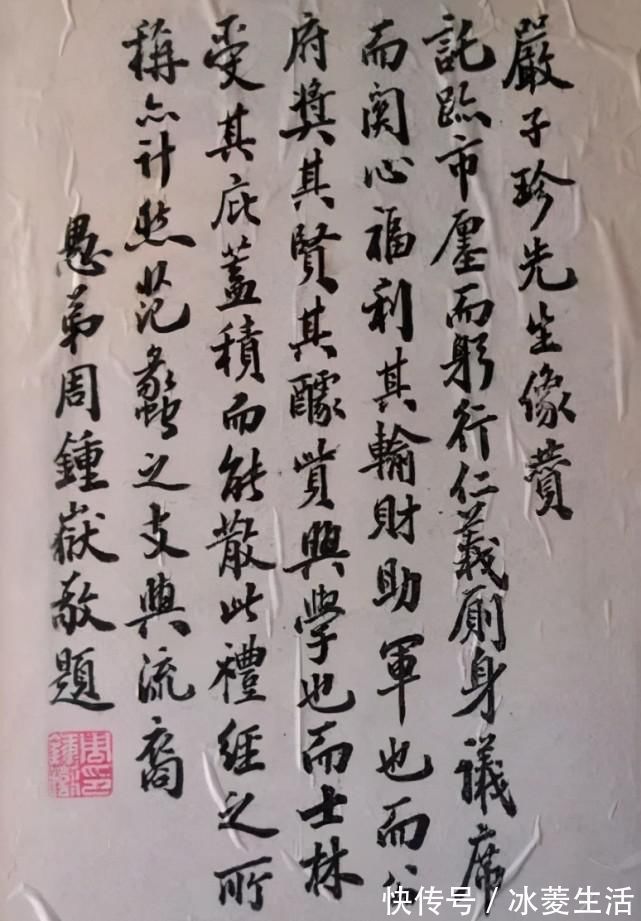 嚴子珍先生像贊
託跡市廛而躬行仁義廁身議席
而関心福利其輸財助軍也而公
府奬其賢其醵貲興學也而士林
受其庇蓋積而能散此禮經之所
稱亦计然范蠡之支與流裔
愚弟周鍾嶽敬題
周印鍾嶽
快传号 / 冰菱生活